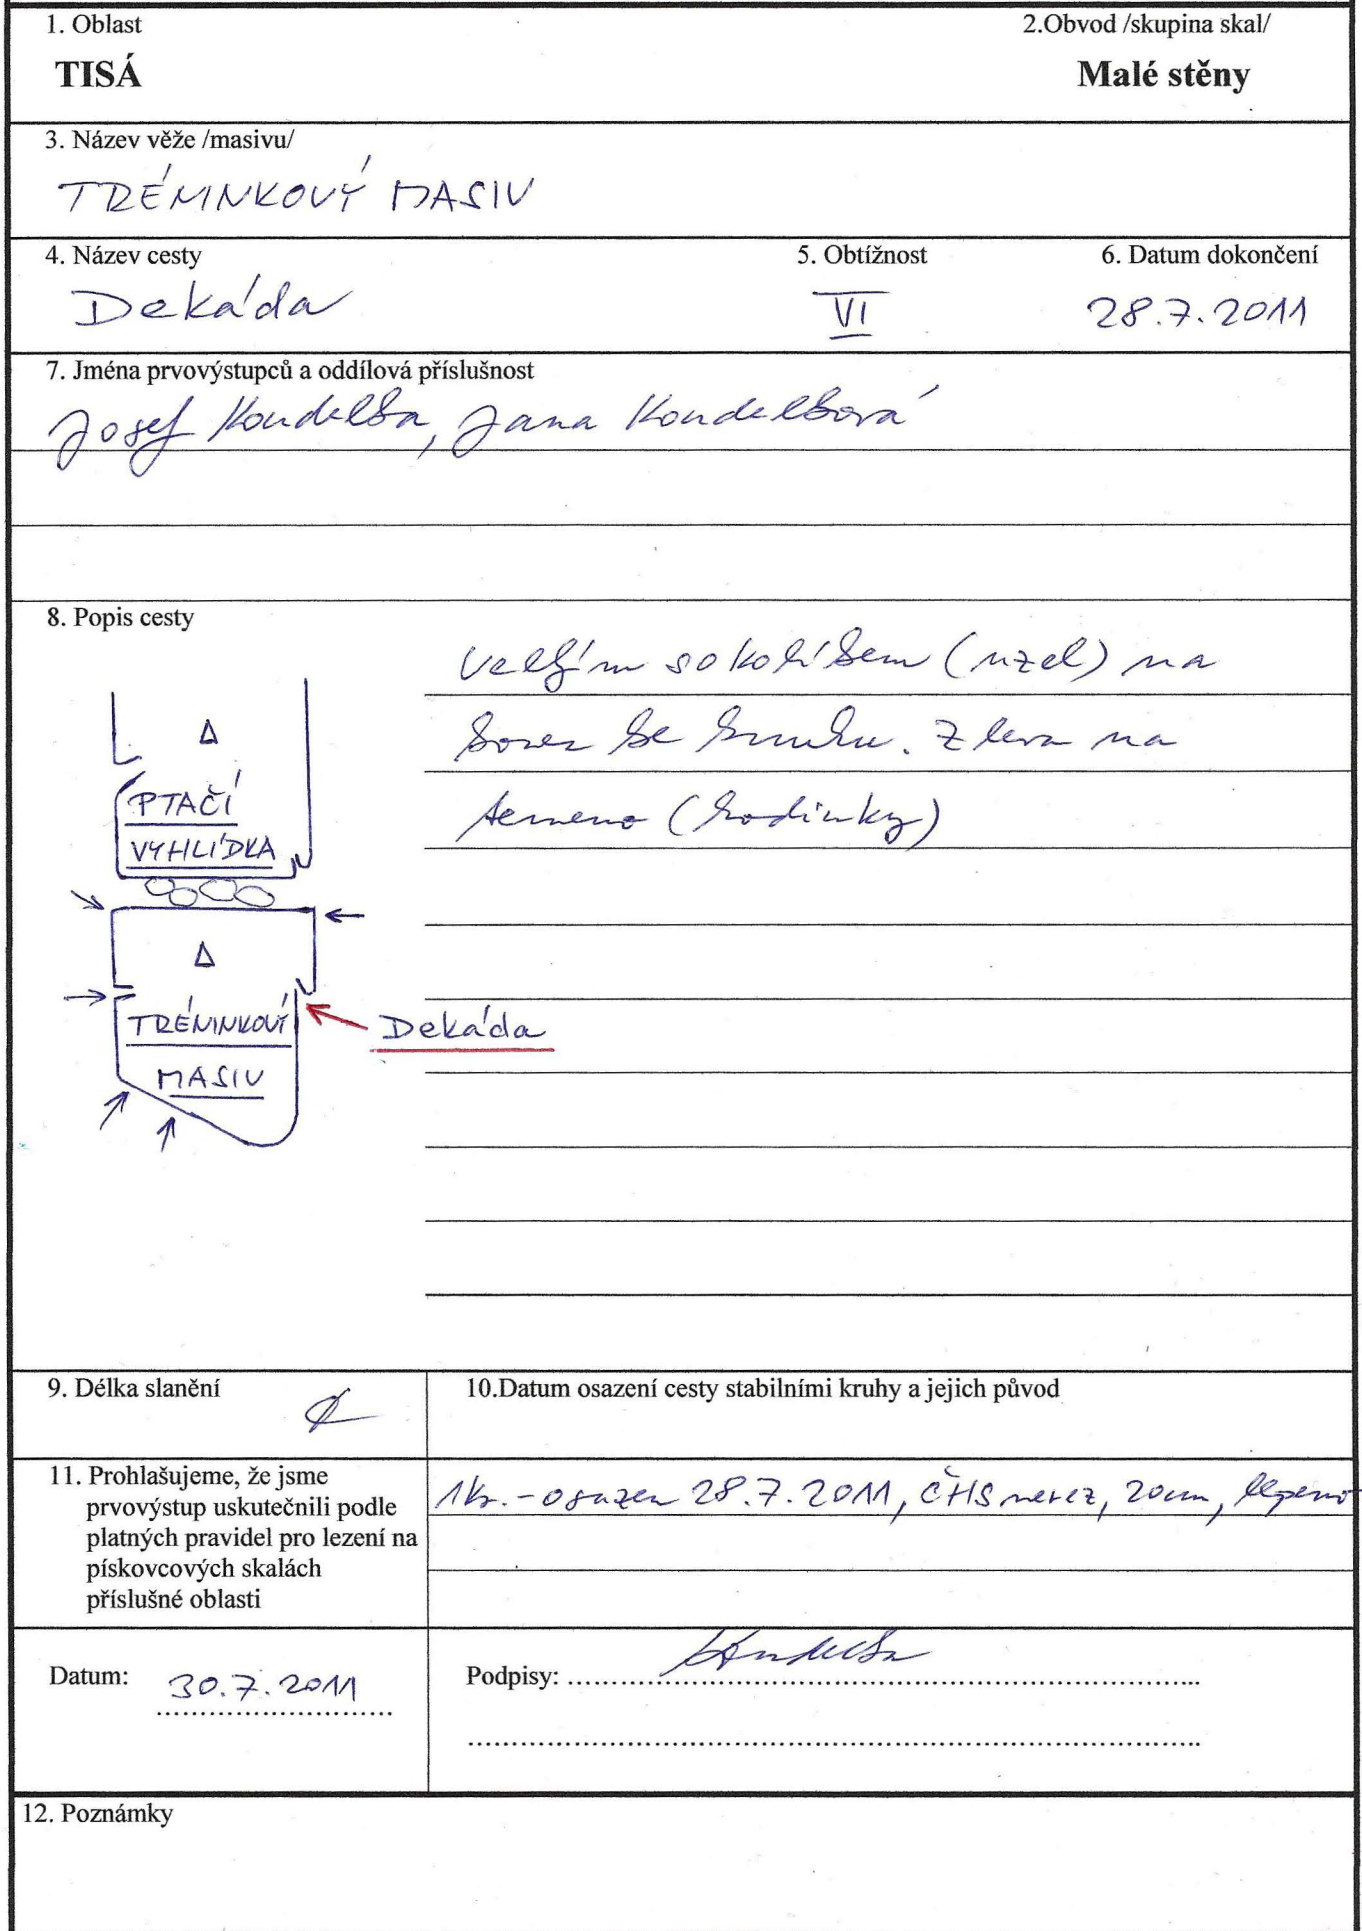 1. Oblast 2.Obvod /skupina skal/
TISÁ Malé stěny
3. Název věže /masivu/
TRÉNINKOVÝ MASIV
4. Název cesty 5. Obtížnost 6. Datum dokončení
Dekáda VI 28.7.2011
7. Jména prvovýstupců a oddílová příslušnost
Josef Koudelka, Jana Koudelková
8. Popis cesty
Velkým sokolíkem (uzel) na
konec ke kruhu. Zleva na
temeno (hodinky)
PTAČÍ
VYHLÍDKA
TRÉNINKOVÝ
MASIV
Dekáda
9. Délka slanění
10.Datum osazení cesty stabilními kruhy a jejich původ
11. Prohlašujeme, že jsme
prvovýstup uskutečnili podle
platných pravidel pro lezení na
pískovcových skalách
příslušné oblasti
1kr. - osazen 28.7.2011, ČHS nerez, 20cm, lepeno
Datum: 30.7.2011
Podpisy: Koudelka
12. Poznámky